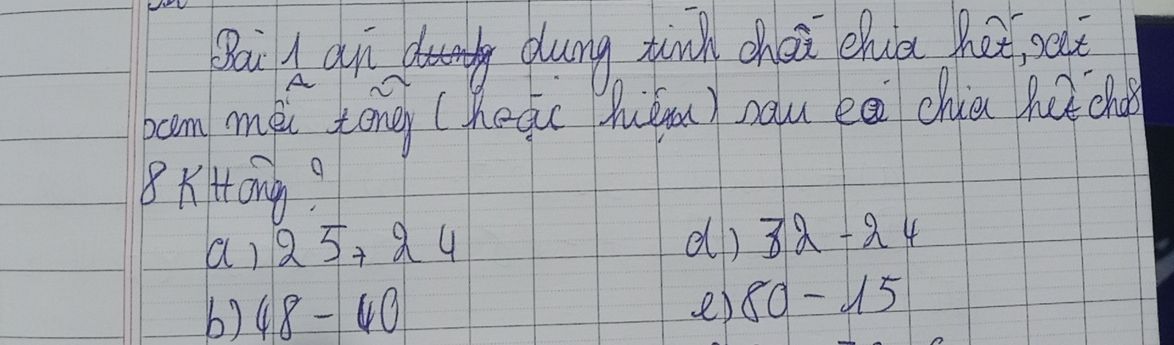 Bài 1 áp dụng tính chất chia hết, xét
xem mỗi tổng (hoặc hiệu) sau có chia hết cho 8
8 KHông?
a) 25 + 24
d) 32 - 24
b) 48 - 40
e) 80 - 15